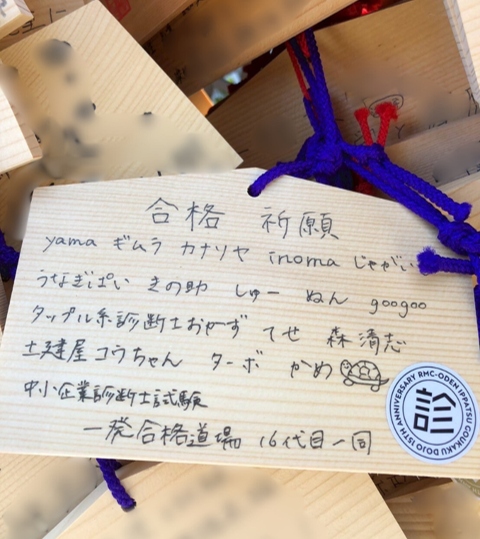 合格 祈願
yama ギムラ カナソヤ inoma じゃがい
うなぎぱい きの助 しゅー ぬん googoo
タップル系診断士おやず てせ 森 清志
土建屋コウちゃん ターボ かめ
中小企業診断士試験
一発合格道場 16代目一同
診
RMC-ODEN IPPATSU GOUKAKU DOJO 15TH ANNIVERSARY